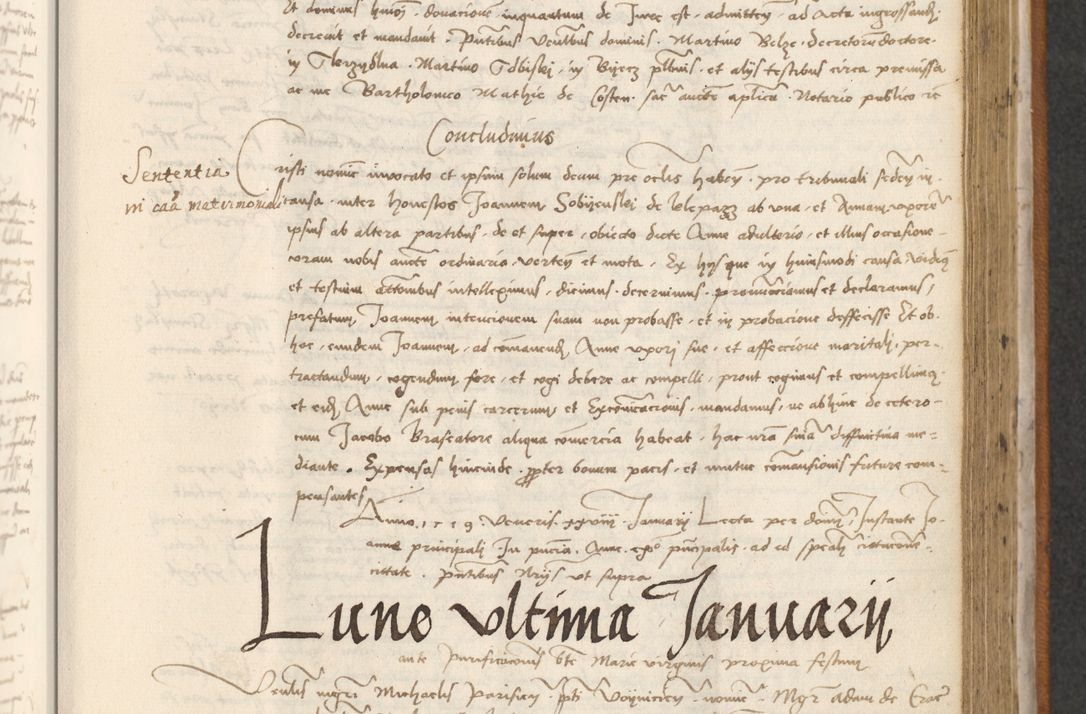 Et dominus huiusmodi donacione inquantum de Jure est admisten ad Acta ingrossandum
decrevit et mandavit. Pntibus Venlbus dominis Martino Belze decretorum doctore
in Martino in Byecz plbnis et alys testibus circa premissa
ac me Bartholomeo Mathie de Costen sac aucte aplica Notario publico etc
Concludimus
Sententia
in caa matrimoniali
Cristi nomine invocato et ipsum solum deum pre oclis haben pro tribunali seden in
causa inter honestos Joannem de ab una et Annam uxorem
ipsius ab altera partibus de et super obiecto dicte Anne adulterio et illius occasione
coram nobis aucte ordinaria verten et mota Ex hys que in huiusmodi causa vidimus
et testium attestationibus intelleximus dicimus decernimus pronunciamus et declaramus
prefatum Joannem intencionem suam non probasse et in probacione deffecisse Et ob
hoc eundem Joannem ad comanendum Anne uxori sue et affeccione maritali per-
tractandum cogendum fore et cogi debere ac compelli prout cogimus et compellimus
et eidem Anne sub penis carcerum et Excomcacionis mandamus ne abhinc de cetero
cum Jacobo Braseatore aliqua comercia habeat hac nra snia diffinitiva me=
diante. Expensas hincinde propter bonum pacis et mutue comansionis future com=
pensantes
Anno 1519 Veneris xxviii Januarii Lecta per dominum Instante Jo-
anne principali In pncia Anne ex principalis ad id speali
citate. Pntibus Nriis ut supra
Lune ultima Januarii
ante Purificationis bte Marie virginis proxima festum
Venlis mgri Michaelis Parisien nomine Mgr adam de